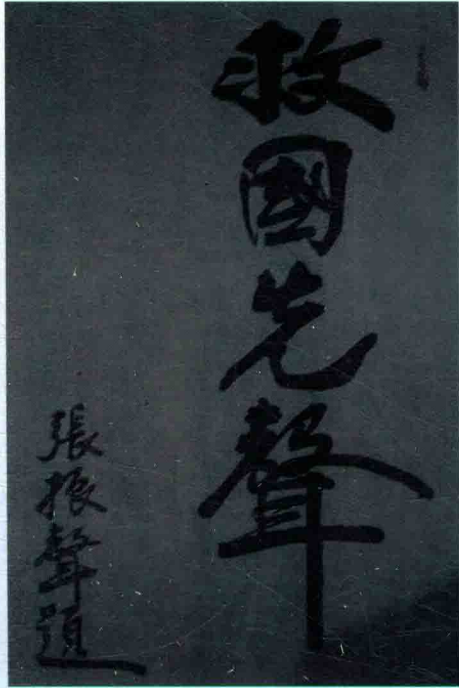 救國先聲
張振聲題